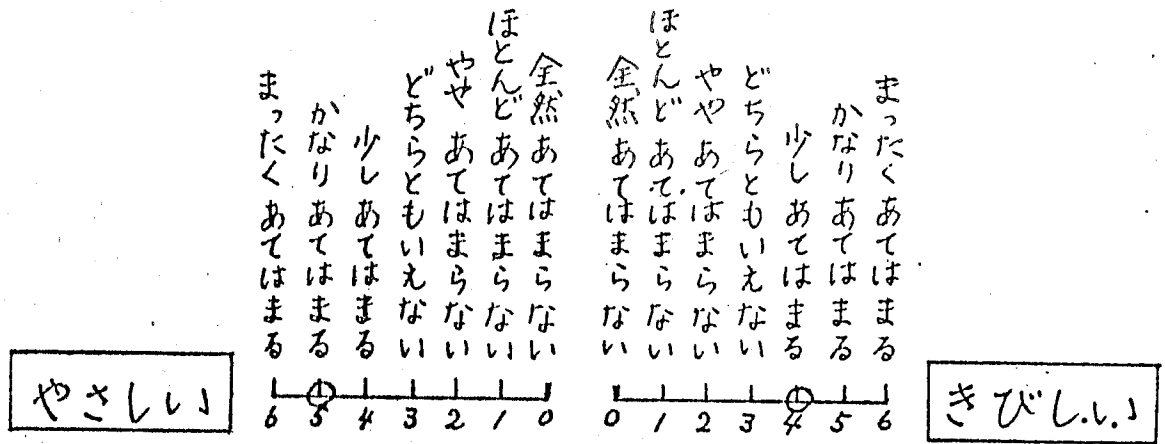 まったくあてはまる
かなりあてはまる
少しあてはまる
どちらともいえない
ややあてはまらない
ほとんどあてはまらない
全然あてはまらない
全然あてはまらない
ほとんどあてはまらない
ややあてはまらない
どちらともいえない
少しあてはまる
かなりあてはまる
まったくあてはまる
やさしい
6 5 4 3 2 1 0
0 1 2 3 4 5 6
きびしい